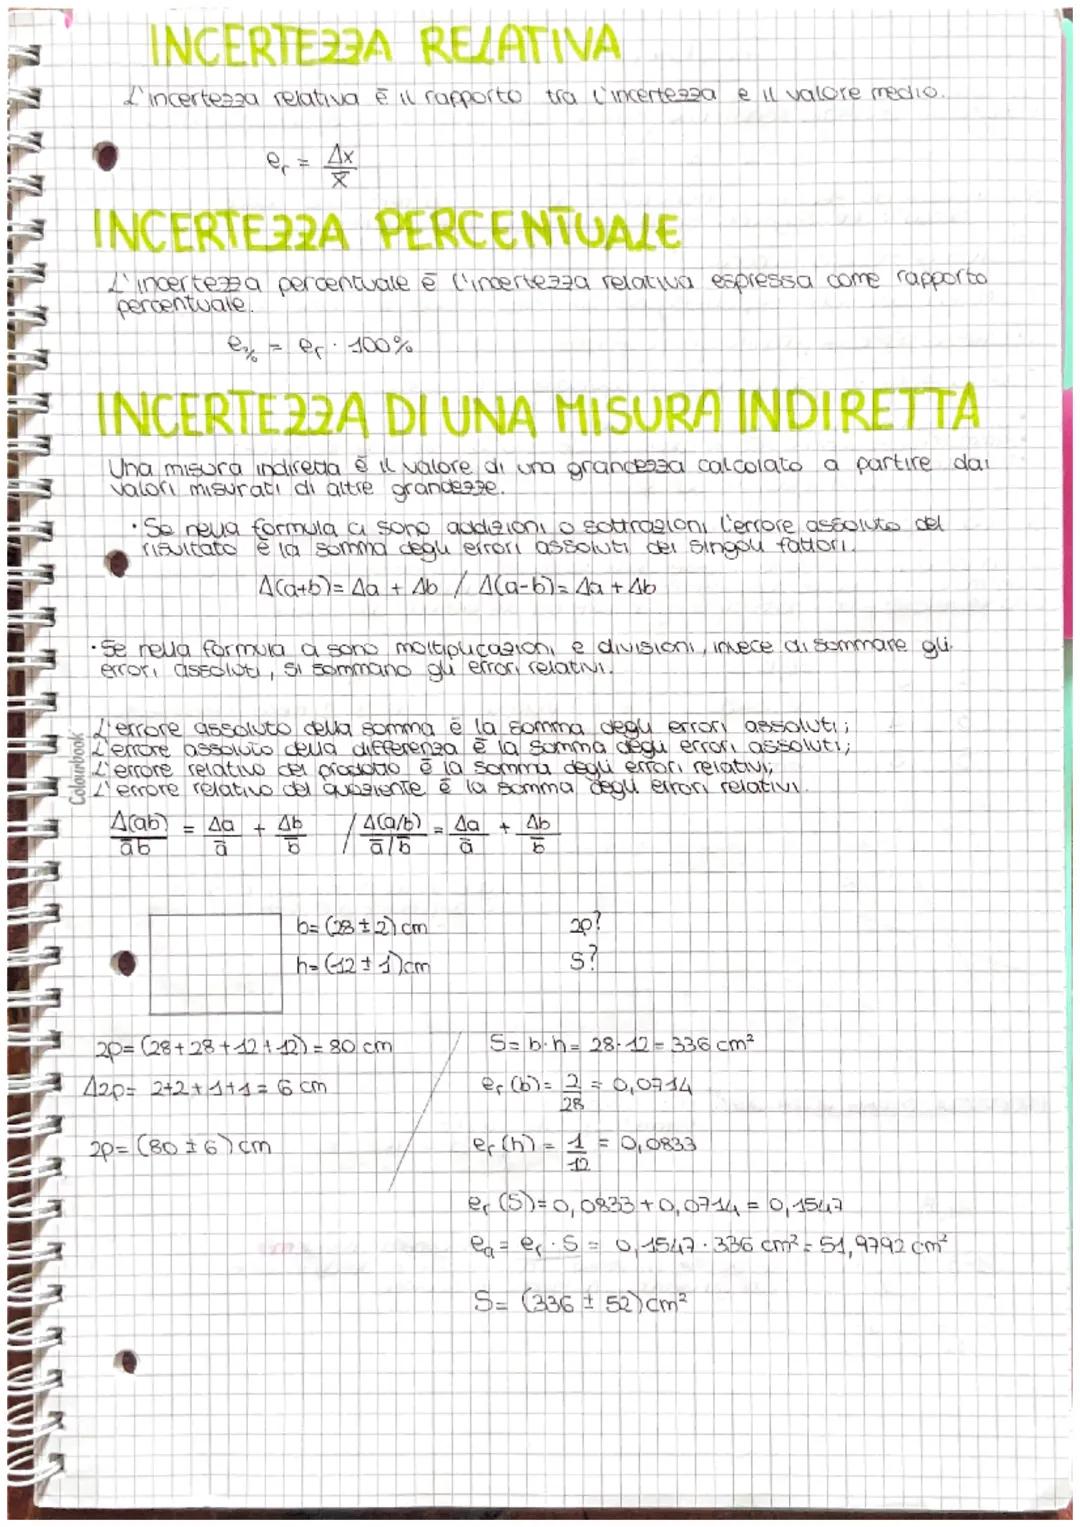 INCERTEZZA RELATIVA
L'incertezza relativa è il rapporto tra l'incertezza e il valore medio.
eᵣ = Δx/x̄
INCERTEZZA PERCENTUALE
L'incertezza percentuale è l'incertezza relativa espressa come rapporto
percentuale.
e% = eᵣ · 100%
INCERTEZZA DI UNA MISURA INDIRETTA
Una misura indiretta è il valore di una grandezza calcolato a partire dai
valori misurati di altre grandezze.
• Se nella formula ci sono addizioni o sottrazioni l'errore assoluto del
risultato è la somma degli errori assoluti dei singoli fattori.
Δ(a+b)= Δa + Δb / Δ(a-b)= Δa + Δb
• Se nella formula ci sono moltiplicazioni e divisioni, invece di sommare gli
errori assoluti, si sommano gli errori relativi.
L'errore assoluto della somma è la somma degli errori assoluti;
L'errore assoluto della differenza è la somma degli errori assoluti;
L'errore relativo del prodotto è la somma degli errori relativi;
L'errore relativo del quoziente è la somma degli errori relativi.
Colourbook
Δ(ab)/āb̄ = Δa/ā + Δb/b̄ / Δ(a/b)/ā/b̄ = Δa/ā + Δb/b̄
b= (28 ± 2) cm 2p?
h= (12 ± 1) cm S?
2p= (28+28+12+12) = 80 cm
Δ2p= 2+2+1+1= 6 cm
2p= (80 ± 6) cm
S= b·h= 28·12= 336 cm²
eᵣ (b)= 2/28 = 0,0714
eᵣ (h) = 1/12 = 0,0833
eᵣ (S)= 0,0833 + 0,0714 = 0,1547
eₐ = eᵣ · S = 0,1547 · 336 cm² = 51,9792 cm²
S= (336 ± 52) cm²